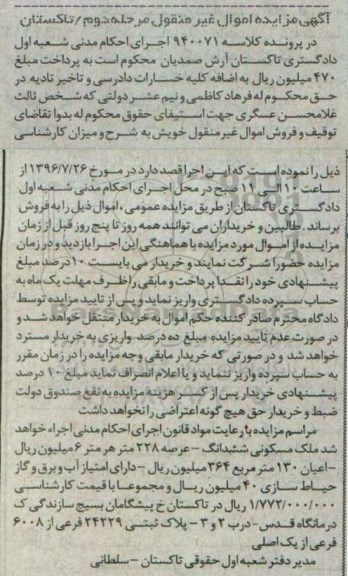 آگهی مزایده اموال غیر منقول مرحله دوم / تاکستان
در پرونده کلاسه ۹۴۰۰۷۱ اجرای احکام مدنی شعبه اول
دادگستری تاکستان آرش صمدیان محکوم است به پرداخت مبلغ
۴۷۰ میلیون ریال به اضافه کلیه خسارات دادرسی و تاخیر تادیه در
حق محکوم له فرهاد کاظمی و نیم عشر دولتی که شخص ثالث
غلامحسن عسگری جهت استیفای حقوق محکوم له بدوا تقاضای
توقیف و فروش اموال غیر منقول خویش به شرح و میزان کارشناسی
ذیل را نموده است که این اجرا قصد دارد در مورخ ۱۳۹۶/۷/۲۶ از
ساعت ۱۰ الی ۱۱ صبح در محل اجرای احکام مدنی شعبه اول
دادگستری تاکستان از طریق مزایده عمومی ، اموال ذیل را به فروش
برساند . طالبین و خریداران می توانند همه روز تا پنج روز قبل از زمان
مزایده از اموال مورد مزایده با هماهنگی این اجرا بازدید و در زمان
مزایده حضورا شرکت نمایند و خریدار می بایست ۱۰ درصد مبلغ
پیشنهادی خود را نقدا پرداخت و مابقی را ظرف مهلت یک ماه به
حساب سپرده دادگستری واریز نماید و پس از تایید مزایده توسط
دادگاه محترم صادر کننده حکم اموال به خریدار منتقل خواهد شد و
در صورت عدم تایید مزایده مبلغ ده درصد واریزی به خریدار مسترد
خواهد شد و در صورتی که خریدار مابقی وجه مزایده را در زمان مقرر
به حساب سپرده واریز ننماید و یا اعلام انصراف نماید مبلغ ۱۰ درصد
پیشنهادی خریدار پس از کسر هزینه مزایده به نفع صندوق دولت
ضبط و خریدار حق هیچ گونه اعتراضی را نخواهد داشت
مراسم مزایده با رعایت مواد قانون اجرای احکام مدنی اجراء خواهد
شد ملک مسکونی ششدانگ - عرصه ۲۲۸ متر هر متر ۶ میلیون ریال
- اعیان ۱۳۰ متر مربع ۳۶۴ میلیون ریال - دارای امتیاز آب و برق و گاز
حیاط سازی ۴۰ میلیون ریال و مجموعا با قیمت کارشناسی
۱/۷۷۲/۰۰۰/۰۰۰ ریال در تاکستان خ پیشگامان بسیج سازندگی ک
درمانگاه قدس - درب ۲ و ۳ - پلاک ثبتی ۲۴۲۲۹ فرعی از ۶۰۰۸
فرعی از یک اصلی
مدیر دفتر شعبه اول حقوقی تاکستان - سلطانی